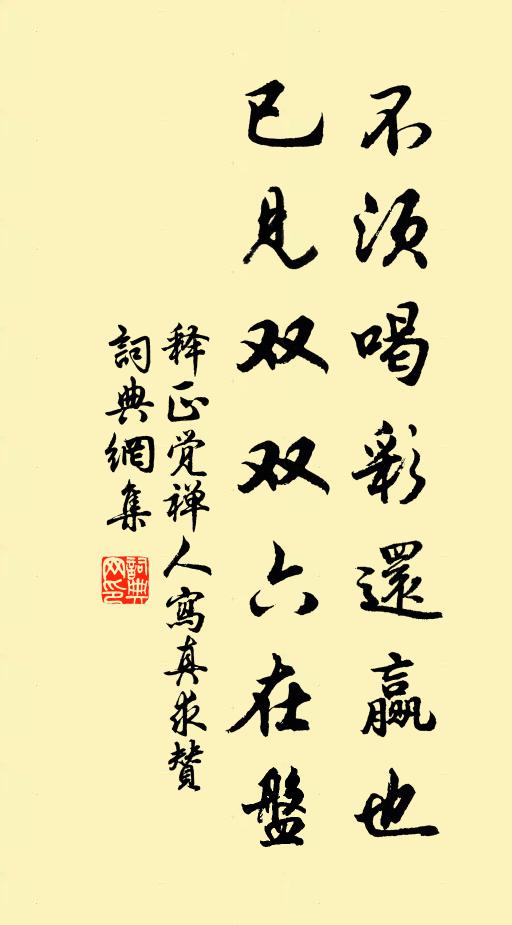 不须喝彩還贏也
已見双双六在盤
释正觉禅人寫真求贊
詞典網集
詞典網印